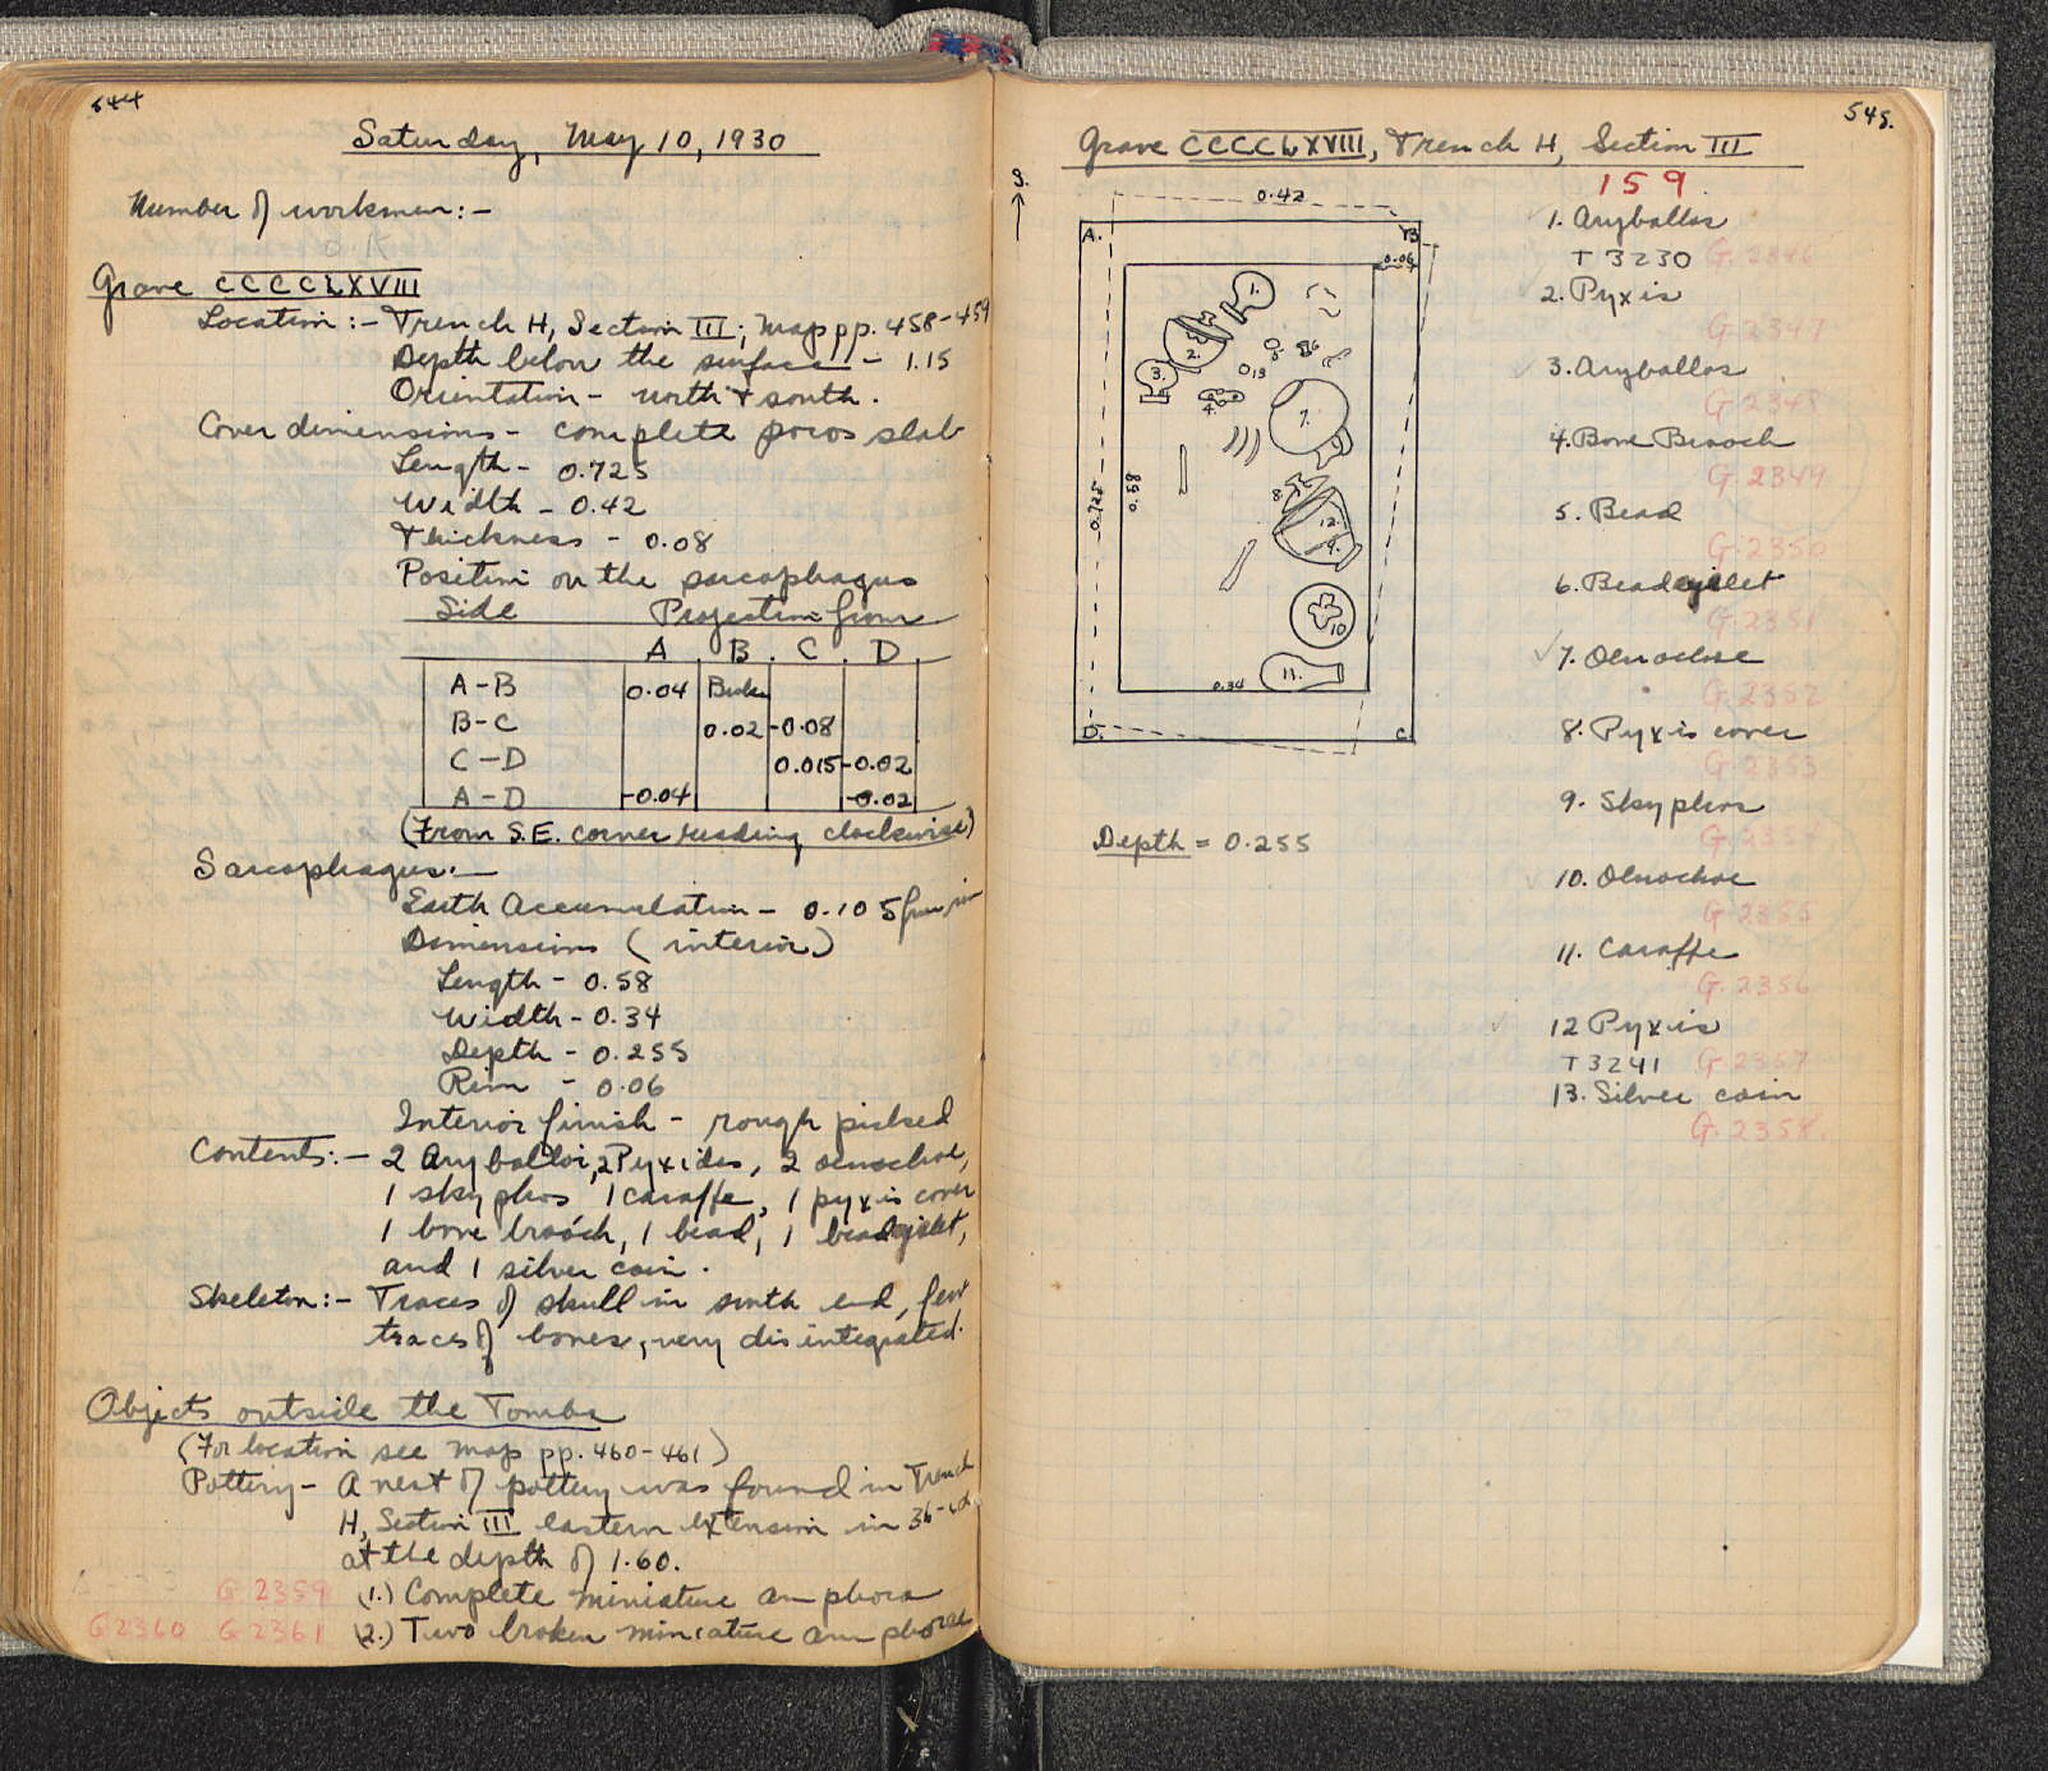 544
Saturday, May 10, 1930
Number of workmen:-
Grave CCCCLXVIII
Location:- Trench H, Section III; Map pp. 458-459
Depth below the surface - 1.15
Orientation - north + south.
Cover dimensions - complete poros slab
Length - 0.725
Width - 0.42
Thickness - 0.08
Position on the sarcophagus
Side Projection from
A B C D
A-B 0.04 Broken
B-C 0.02 -0.08
C-D 0.015 -0.02
A-D -0.04 -0.02
(From S.E. corner reading clockwise)
Sarcophagus:-
Earth Accumulation - 0.105 from rim
Dimensions (interior)
Length - 0.58
Width - 0.34
Depth - 0.255
Rim - 0.06
Interior finish - rough picked
Contents:- 2 Aryballoi, 2 Pyxides, 2 oenochoe,
1 skyphos 1 caraffe, 1 pyxis cover
1 bone brooch, 1 bead, 1
and 1 silver coin.
Skeleton:- Traces of skull in south end, few
traces of bones, very disintegrated.
Objects outside the Tombs
(For location see map pp. 460-461)
Pottery - A nest of pottery was found in Trench
H, Section III eastern extension in
at the depth of 1.60.
G 2359 (1.) Complete miniature amphora
G 2360 G 2361 (2.) Two broken miniature amphorae
545.
Grave CCCCLXVIII, Trench H, Section III
159.
S.
0.42
A. B
0.06
1.
2.
3.
13
4.
7.
0.725
0.58
8.
12.
9.
10
11.
0.34
D. C.
Depth = 0.255
1. Aryballos
T 3230 G. 2346
2. Pyxis
G 2347
3. Aryballos
G 2348
4. Bone Brooch
G. 2349
5. Bead
G. 2350
6.
G. 2351
7. Oenochoe
G. 2352
8. Pyxis cover
G. 2353
9. Skyphos
G. 2354
10. Oenochoe
G 2355
11. Caraffe
G. 2356
12 Pyxis
T 3241 G. 2357
13. Silver coin
G. 2358.